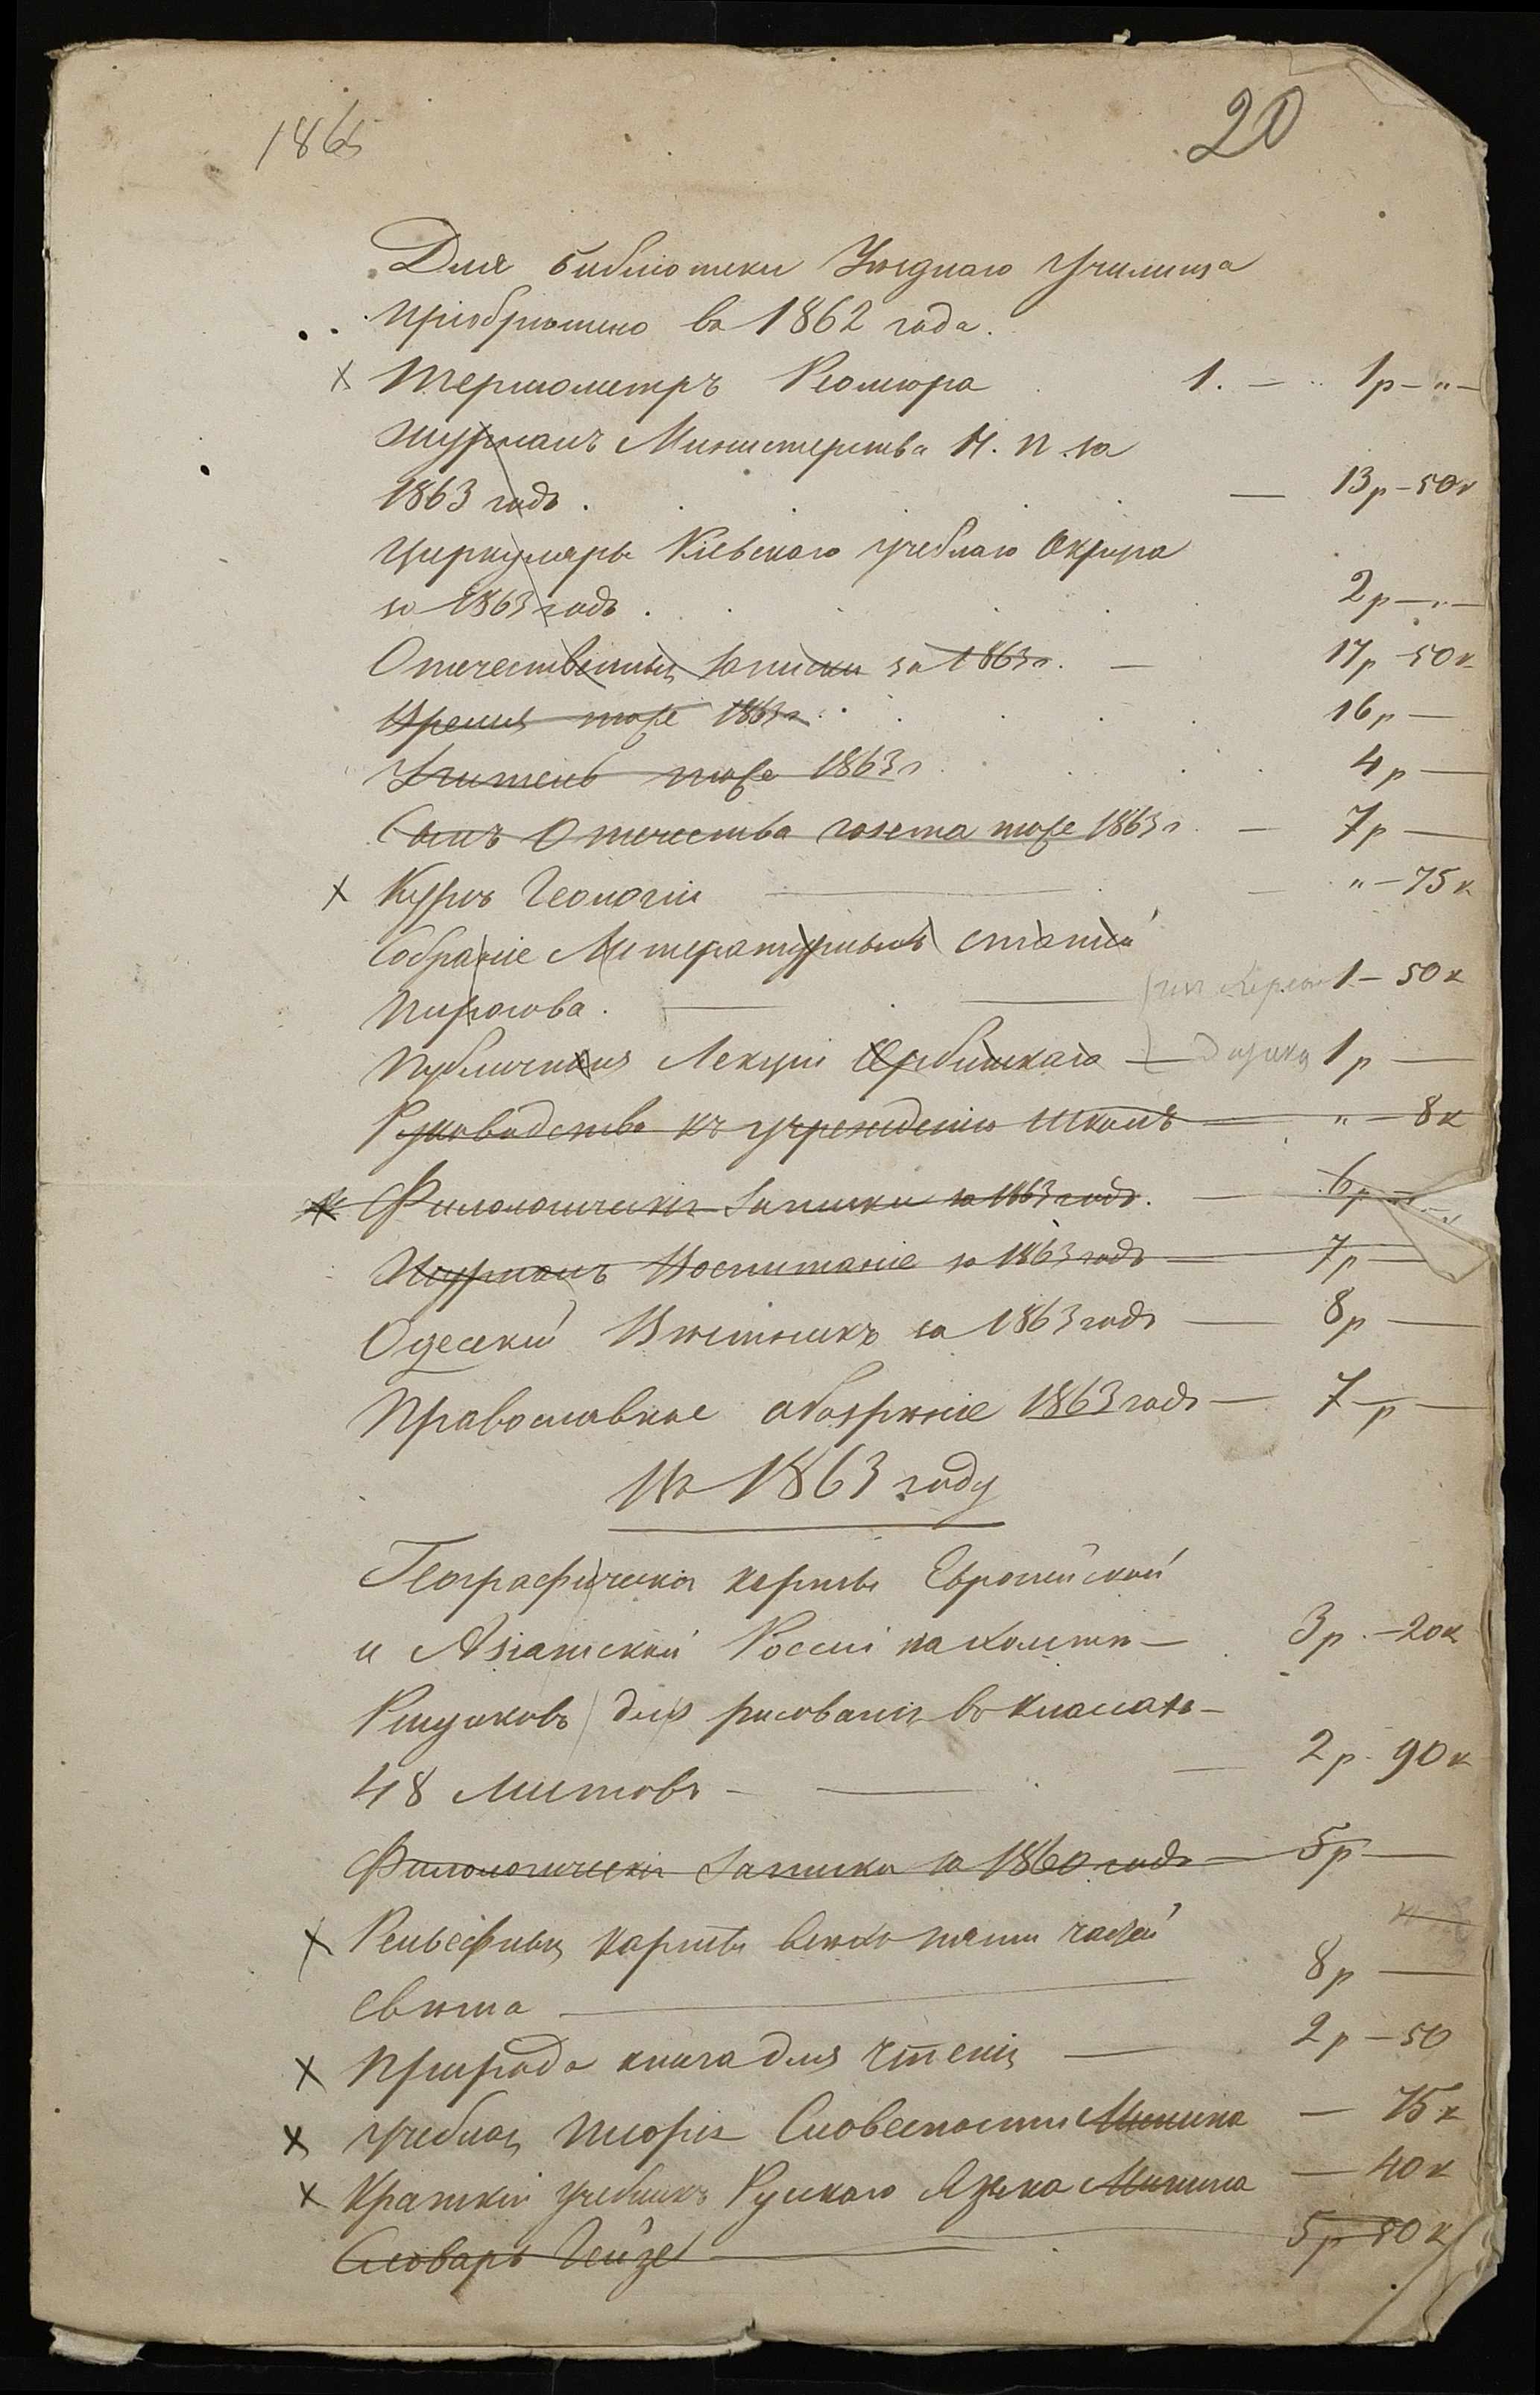 1865
20
Для библіотеки Уѣзднаго Училища
пріобрѣтено въ 1862 года.
Термометръ Реомюра 1. — 1р — „ —
Журналъ Министерства Н. П. за
1863 годъ. — 13р — 50к
Циркуляры Кіевскаго учебнаго Округа
за 1863 годъ. 2р — „ —
Отечественныя Записки за 1863г. — 17р — 50к
Время тоже 1863г. 16р —
Учитель тоже 1863г 4р —
Сынъ Отечества газета тоже 1863г. — 7р —
Курсъ Геологіи — „ — 75к
Собраніе Литературныхъ статей
Пирогова. — 1 — 50к
Публичныя Лекціи — 1р —
Руководство къ учрежденію школъ — „ — 8к
Филологическія Записки за 1863 годъ. — 6р
Журналъ Воспитаніе за 1863 годъ — 7р —
Одескій Вѣстникъ за 1863 годъ — 8р —
Православное обозрѣніе 1863 годъ — 7 р —
Въ 1863 году
Географическія карты Европейской
и Азіатской Россіи на холстѣ — 3р. — 20к
Рисунковъ для рисованія въ классахъ —
48 листовъ — 2р. 90к
Филологическія Записки за 1860 годъ — 5р —
Рельефныя карты всѣхъ пяти частей
свѣта — 8р —
Природа книга для чтенія — 2р — 50
Учебная теорія Словесности Минина — 75к
Краткій учебникъ Рускаго Языка Минина — 40к
Словарь Гейзе — 5р 80к